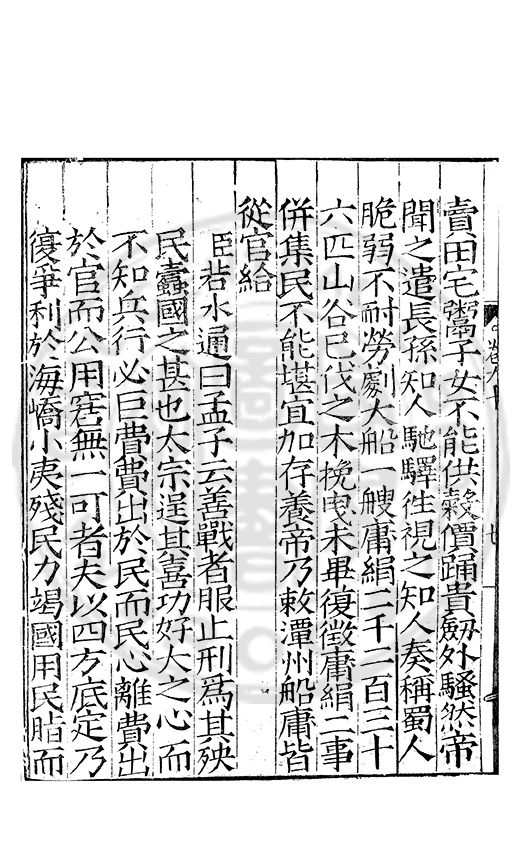 賣田宅鬻子女不能供穀價踊貴劔外騷然帝
聞之遣長孫知人馳驛徃視之知人奏稱蜀人
脆弱不耐勞劇大船一艘庸絹二千二百三十
六匹山谷已伐之木挽曳未畢復徵庸絹二事
併集民不能堪宜加存養帝乃敕潭州船庸皆
從官給
臣若水通曰孟子云善戰者服上刑為其殃
民蠹國之甚也太宗逞其喜功好大之心而
不知兵行必巨費費出於民而民心離費出
於官而公用窘無一可者夫以四方底定乃
復爭利於海嶠小夷殘民力竭國用民脂而